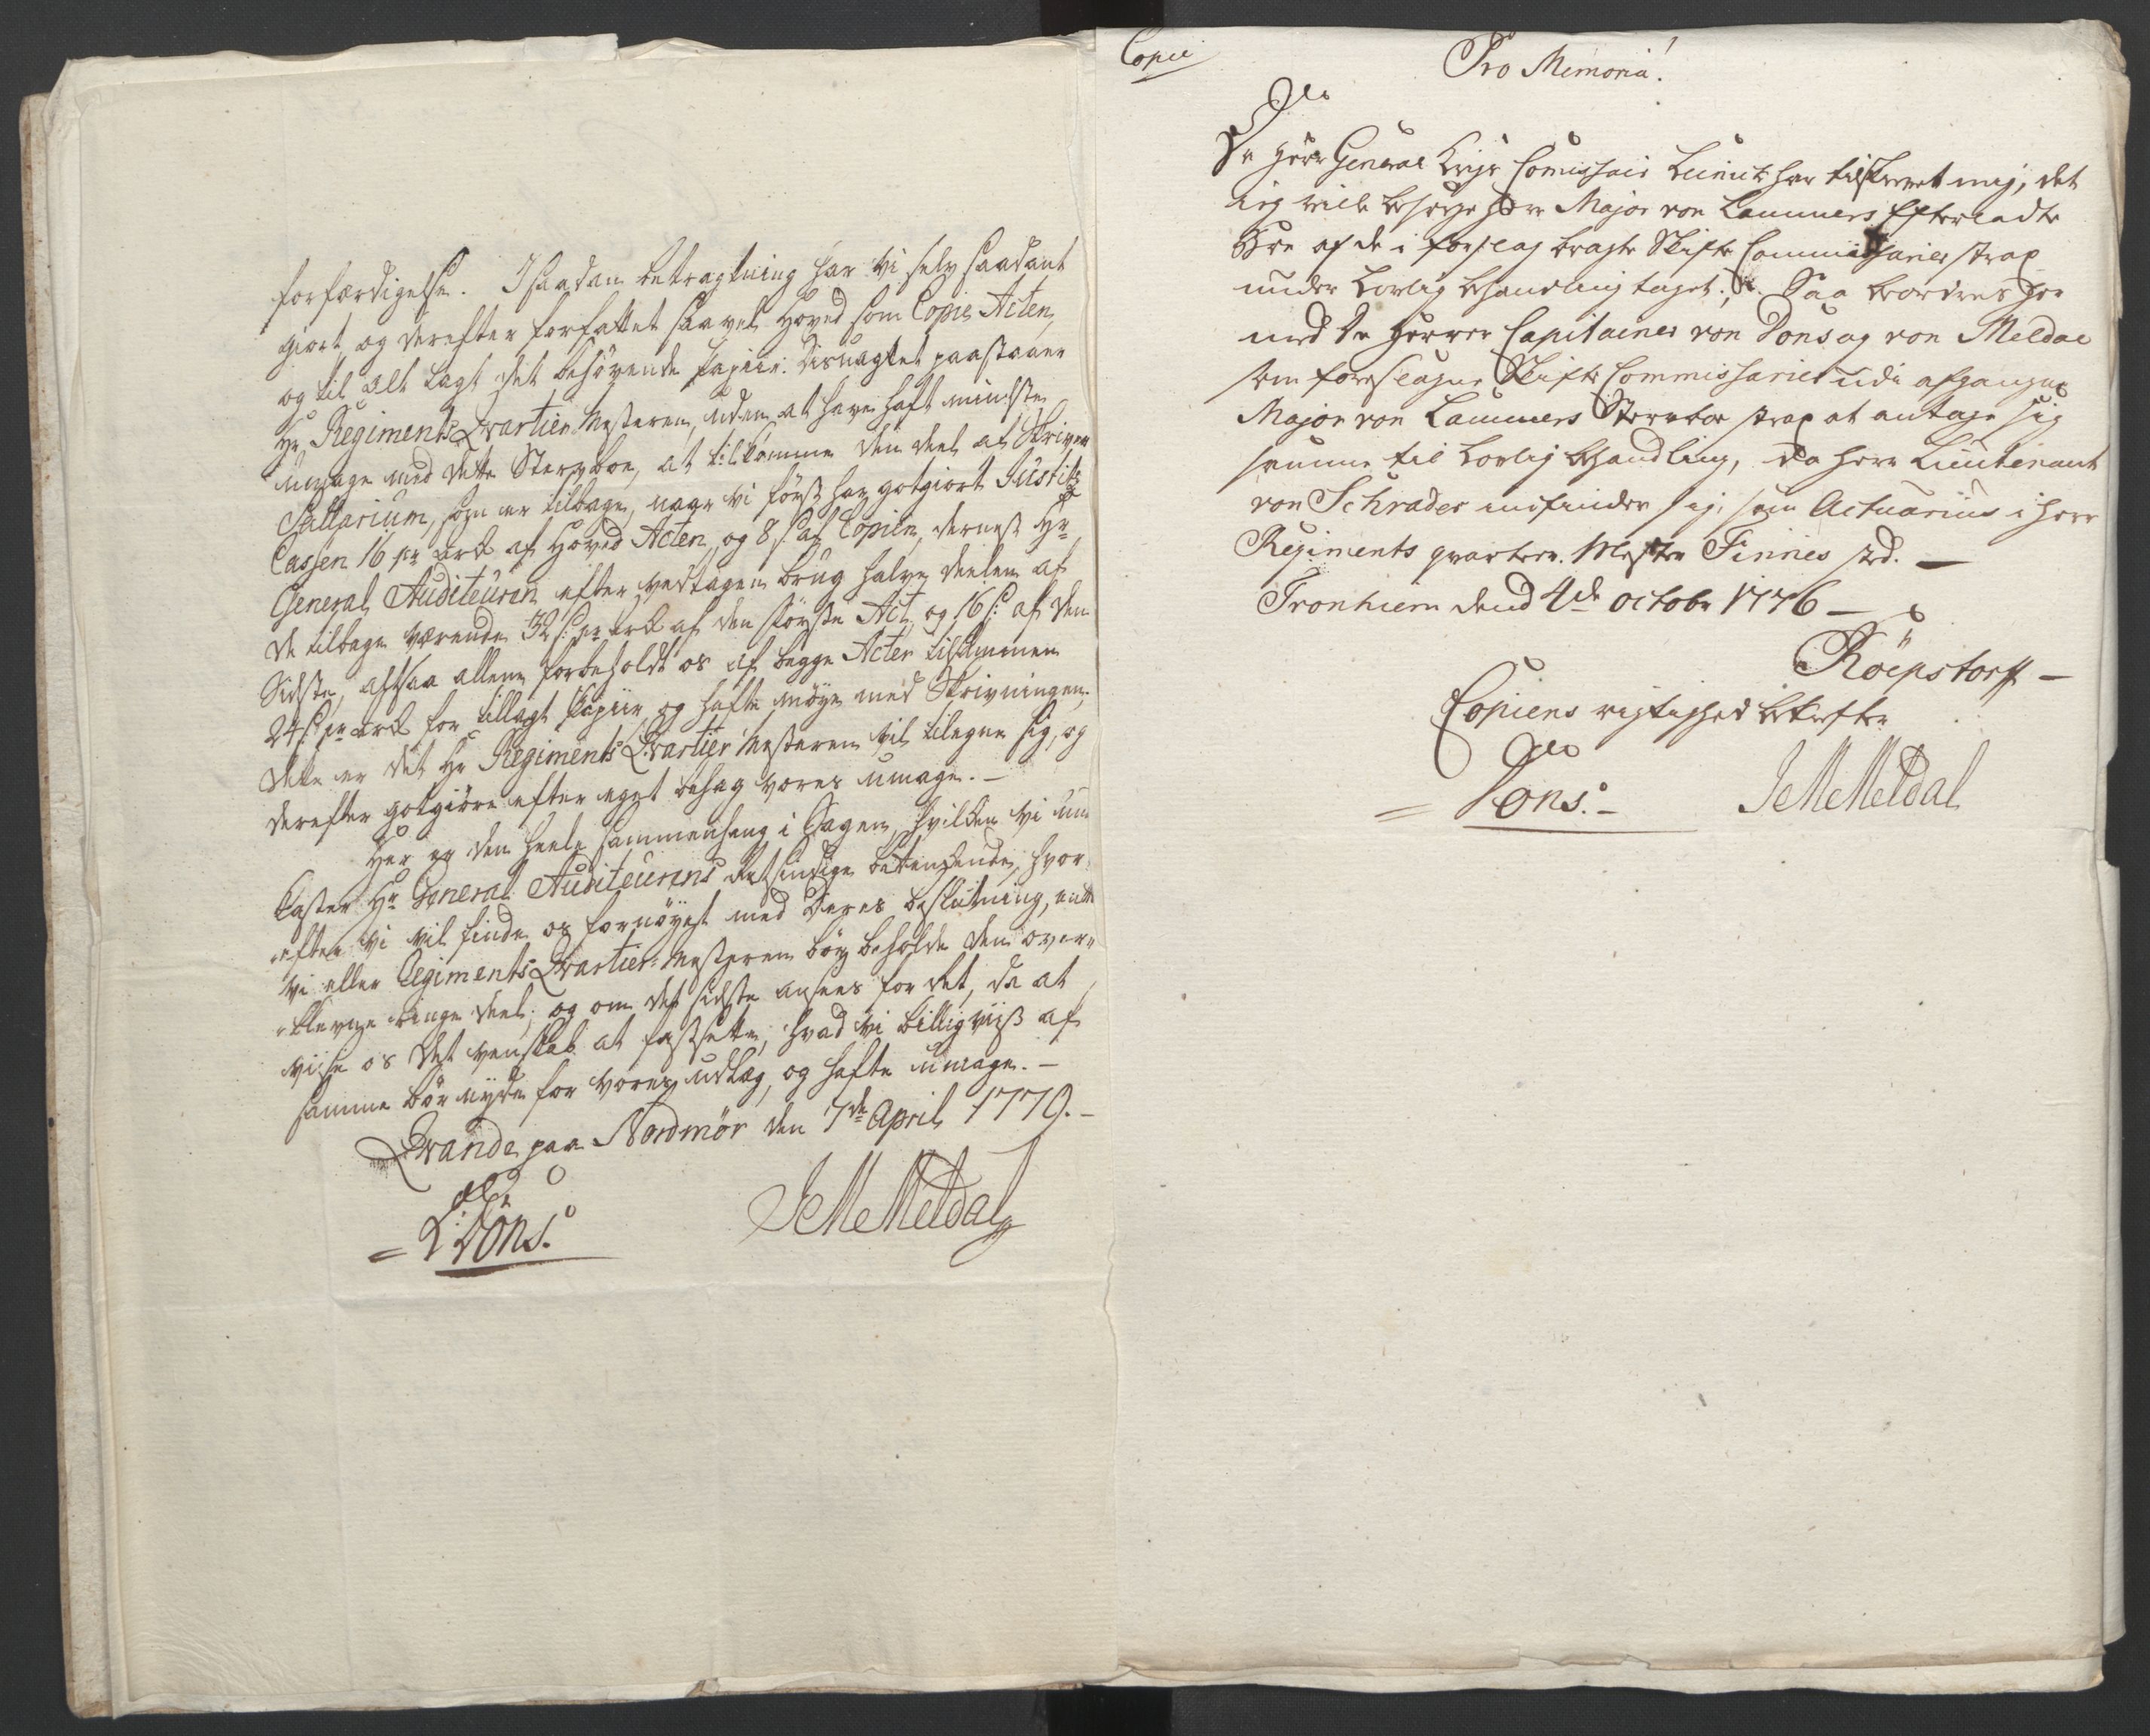 forfærdigelse. I saadan betragtning har vi selv saadant
giort, og derefter forfattet saavel Hoved som Copie Acten,
og til alt lagt det behövende Papiir. Disuagtet paastaaer
Hr Regiments Qvartier Mesteren, uden at have haft mindste
umage med dette Sterfboe, at tilkomme den deel af Skriver
Sallarium, som er tilbage, naar vi först har gotgiort Justitz
Cassen 16 s pr ark af Hoved Acten, og 8 s: af Copien, dernest Hr
General Auditeuren efter vedtagen brug halve deelen af
de tilbage værende 32 s: pr ark af den störste Act, og 16 s: af den
Sidste, altsaa allene forbeholdt os af begge Acter tilsammen
24 s: pr ark for tillagt Papiir og hafte möye med Skrivningen;
dette er det Hr Regiments Qvartier Mesteren vil tilegne sig, og
derefter gotgiöre efter eget behag vores umage. —
Her er den heele sammenheng i Sagen, hvilken vi un-
kaster Hr General Auditeurens Retsindige betenkende, hvor-
efter vi vil finde os fornöyest med Deres beslutning, enten
vi eller Regiments Qvartier-Mesteren bör beholde den over-
blevne ringe deel; og om det sidste ansees for det, da at
viise os det venskab at fastsette, hvad vi billigviis af
samme bör nyde for vores udlæg, og hafte umage. —
Qvande paa Nordmör den 7de April 1779. —
= Dons. JM Meldal
Copie
Pro Memoria!
Da Herr General Krigs Comissair Leinich har tilskrevet mig, det
jeg ville besörge Herr Major von Lammers Efterladte
Boe af de i forslag bragte Skifte Commissarier strax
under Lovlig behandling taget; Saa beordres her
med De Herrer Capitainer von Dons og von Meldal
som foreslagne Skifte Commissarier udi afgangne
Major von Lammers Sterboe strax at antage sig
samme til Lovlig behandling, da Herr Lieutenant
von Schrader indfinder sig som Actuarius i Herr
Regiments qvarteer Mester Finnes sted. —
Tronhiem dend 4de Octobr 1776 —
Röepstorff —
Copiens rigtighed bekrefter
= Dons. — JM Meldal